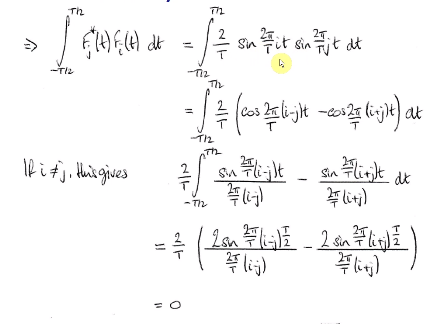 ⇒ ∫_{-T/2}^{T/2} F_j^*(t) F_i(t) dt = ∫_{-T/2}^{T/2} 2/T sin 2π/T it sin 2π/T jt dt
= ∫_{-T/2}^{T/2} 2/T (cos 2π/T (i-j)t - cos 2π/T (i+j)t) dt
If i ≠ j, this gives 2/T ∫_{-T/2}^{T/2} sin 2π/T (i-j)t / 2π/T (i-j) - sin 2π/T (i+j)t / 2π/T (i+j) dt
= 2/T (2 sin 2π/T (i-j) T/2 / 2π/T (i-j) - 2 sin 2π/T (i+j) T/2 / 2π/T (i+j))
= 0